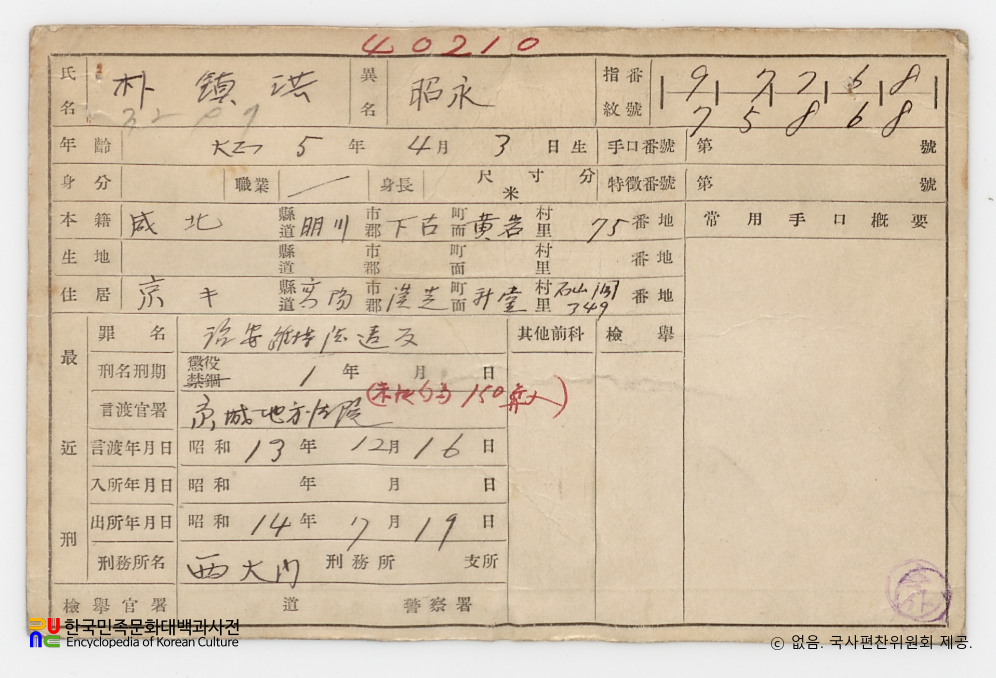 40210
氏名 朴鎮洪 異名 昭永 指紋番號 9 7 7 6 8
7 5 8 6 8
年齡 大正 5 年 4 月 3 日生 手口番號 第 號
身分 職業 身長 尺寸分 米 特徵番號 第 號
本籍 咸北 縣道 明川 市郡 下古 町面 黄岩 村里 75 番地 常用手口概要
生地 縣道 市郡 町面 村里 番地
住居 京キ 縣道 高陽 市郡 漢芝 町面 村里 349 番地
最近刑
罪名 治安維持法違反 其他前科 檢擧
刑名刑期 懲役 禁錮 1 年 月 日
言渡官署 京城地方法院 150
言渡年月日 昭和 13 年 12 月 16 日
入所年月日 昭和 年 月 日
出所年月日 昭和 14 年 7 月 19 日
刑務所名 西大門 刑務所 支所
檢擧官署 道 警察署
한국민족문화대백과사전
Encyclopedia of Korean Culture
ⓒ 없음. 국사편찬위원회 제공.